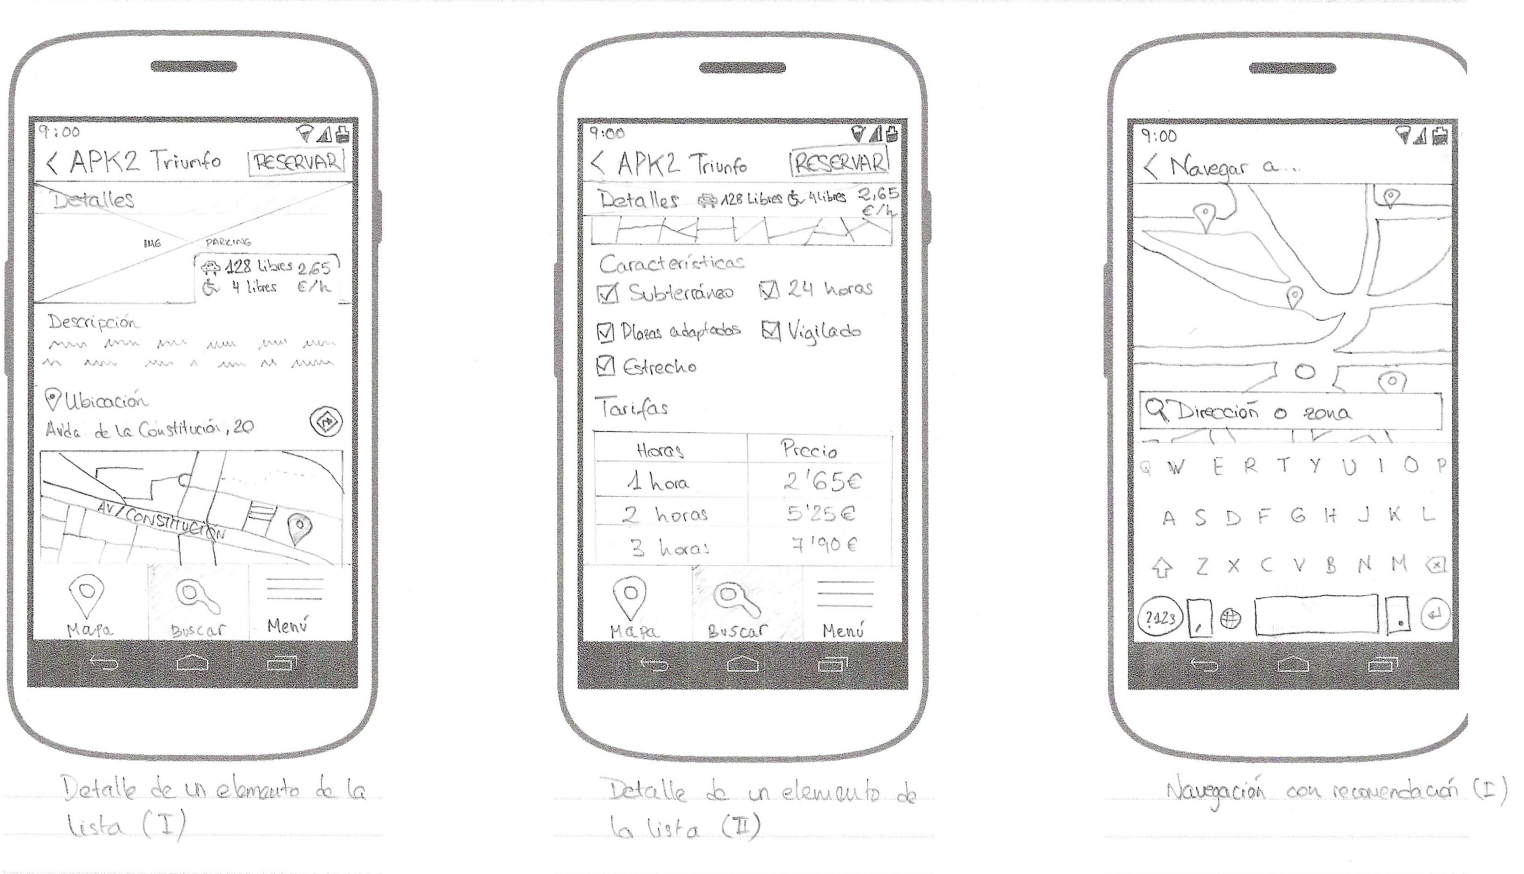 9:00
< APK2 Triunfo RESERVAR
Detalles
IMG PARKING
128 Libres 2,65
4 libres €/h
Descripción
Ubicación
Avda. de la Constitución, 20
AV/CONSTITUCIÓN
Mapa Buscar Menú
Detalle de un elemento de la
lista (I)
9:00
< APK2 Triunfo RESERVAR
Detalles 128 Libres 4 libres 2,65
€/h
Características
Subterráneo 24 horas
Plazas adaptadas Vigilado
Estrecho
Tarifas
Horas Precio
1 hora 2'65€
2 horas 5'25€
3 horas 7'90€
Mapa Buscar Menú
Detalle de un elemento de
la lista (II)
9:00
< Navegar a...
Dirección o zona
Q W E R T Y U I O P
A S D F G H J K L
Z X C V B N M
?123 , .
Navegación con recomendación (I)